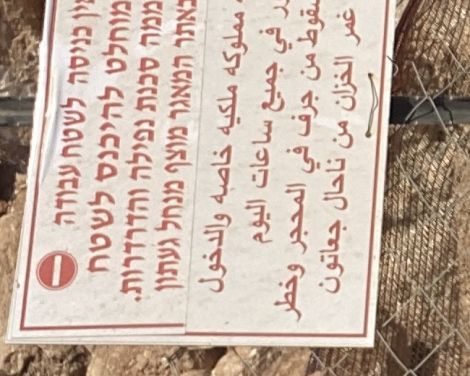 אין כניסה לשטח עבודה
מוחלט להיכנס לשטח
סכנות נפילה והדרדרות.
באתר המאגר מוצף מנחל געתון
مملوكه ملكيه خاصه والدخول
في جميع ساعات اليوم
سقوط من جرف في المحجر وخطر
غمر الخزان من ناحال جعاتون